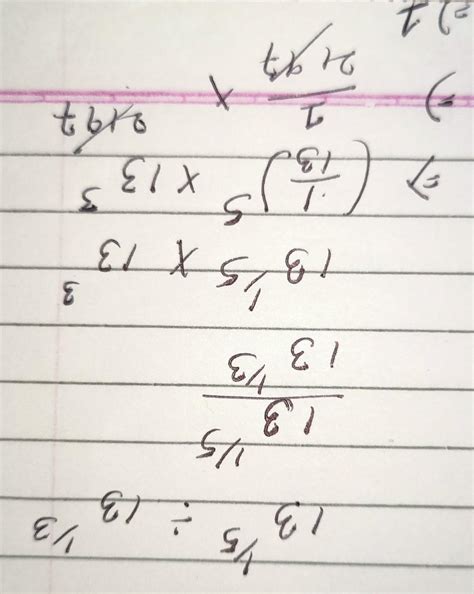 13^1/5 ÷ 13^1/3
13^1/5
13^1/3
13^1/5 × 13^3
=> (1/13)^5 × 13^3
=> 1/2197 × 2197
=> 1